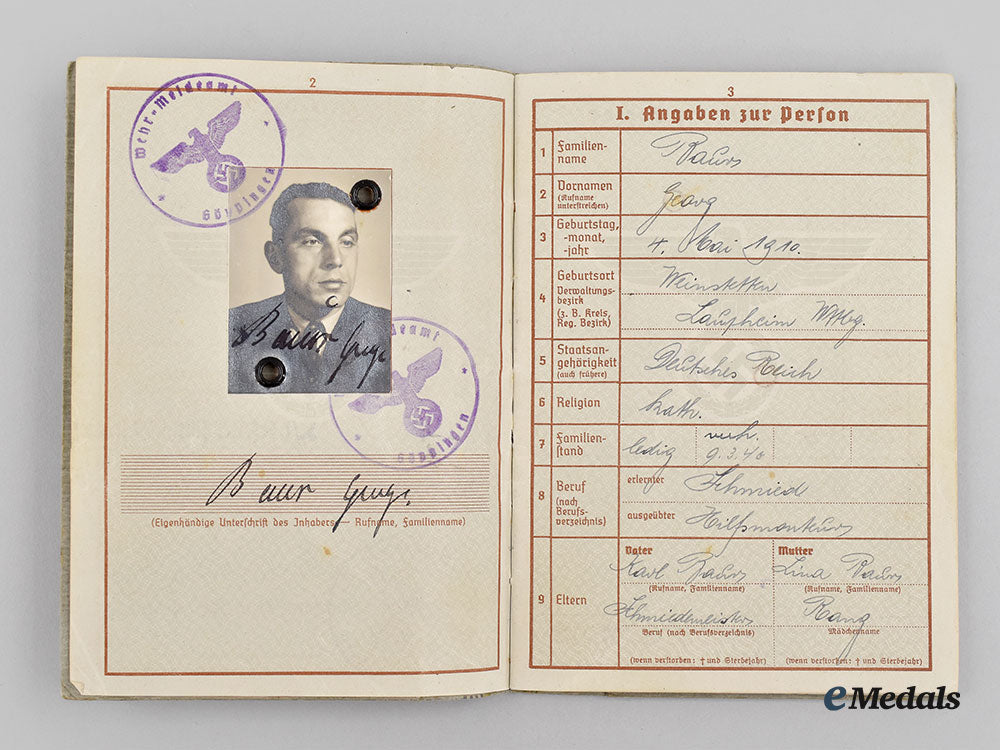 2
Wehr-Meldeamt
Göppingen
Baur
Meldeamt
Göppingen
Baur
(Eigenhändige Unterschrift des Inhabers — Rufname, Familienname)
3
I. Angaben zur Person
1 Familien-
name
Baur
2 Vornamen
(Rufname
unterstreichen)
Georg
3 Geburtstag,
-monat,
-jahr
4. Mai 1910.
4 Geburtsort
Verwaltungs-
bezirk
(z. B. Kreis,
Reg. Bezirk)
Weinstetten
Laupheim Wttbg.
5 Staatsan-
gehörigkeit
(auch frühere)
Deutsches Reich
6 Religion
kath.
7 Familien-
stand
ledig
verh.
9.3.40
8 Beruf
(nach
Berufs-
verzeichnis)
erlernter Schmied
ausgeübter Hilfsmonteur
9 Eltern
Vater
Karl Baur
(Rufname, Familienname)
Schmiedemeister
Beruf (nach Berufsverzeichnis)
(wenn verstorben: † und Sterbejahr)
Mutter
Lina Baur
(Rufname, Familienname)
Rang
Mädchenname
(wenn verstorben: † und Sterbejahr)
eMedals